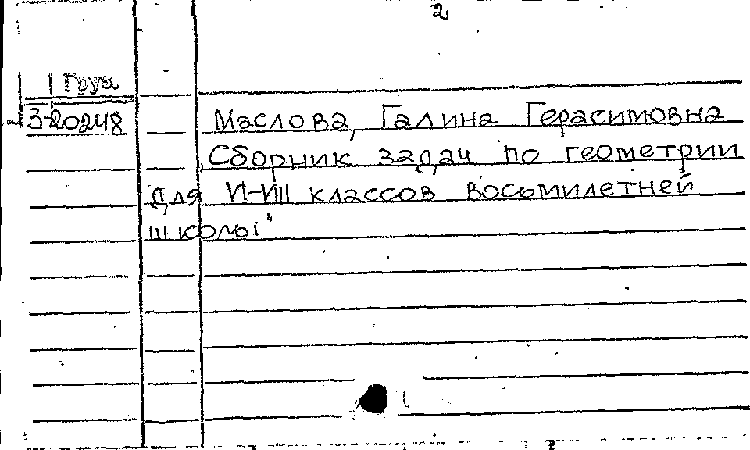 2
Груз
3-20248
Маслова, Галина Герасимовна
Сборник задач по геометрии
для VI-VIII классов восьмилетней
школы"